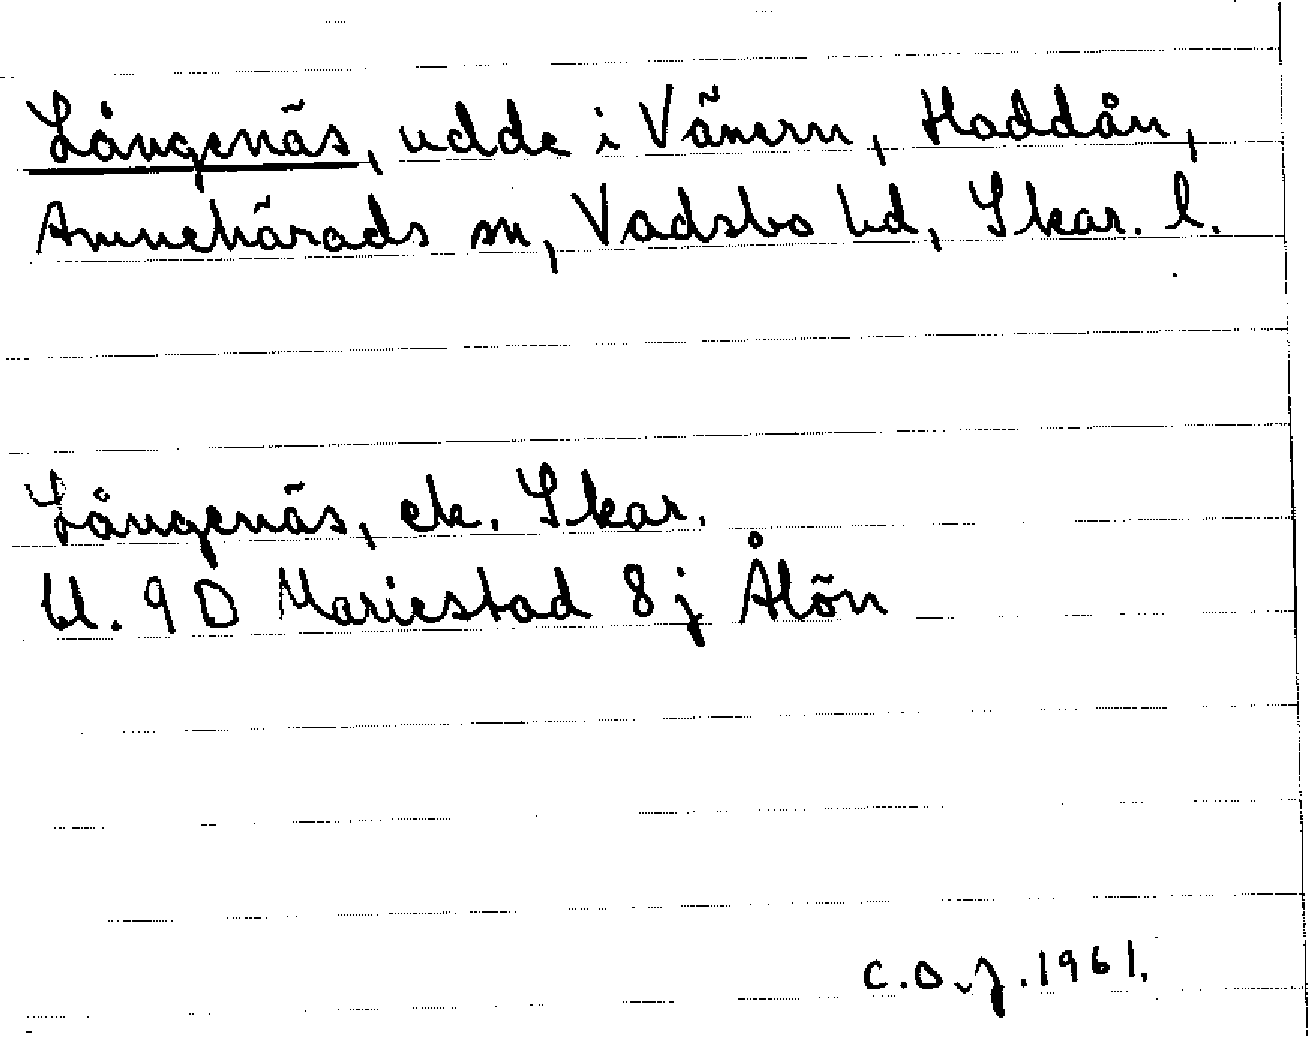 Långenäs, udde i Vänern, Haddån,
Amnehärads sn, Vadsbo hd, Skar. l.
Långenäs, ek. Skar.
bl. 9 D Mariestad 8 j Ålön
C.O.J. 1961.